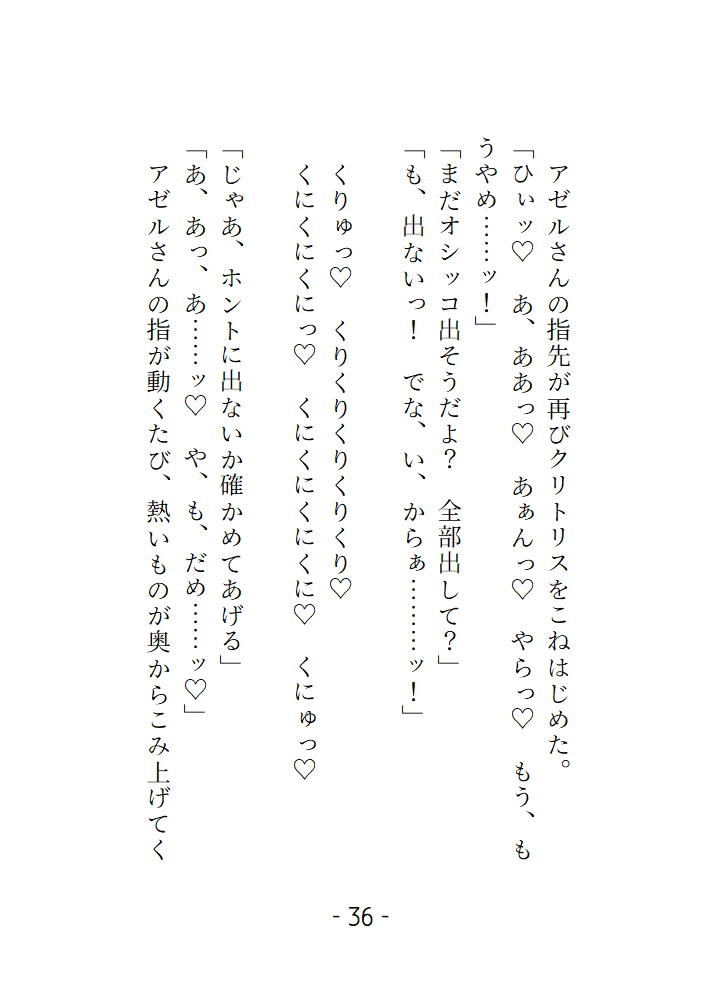 アゼルさんの指先が再びクリトリスをこねはじめた。
「ひぃッ♡　あ、ああっ♡　あぁんっ♡　やらっ♡　もう、も
うやめ……ッ！」
「まだオシッコ出そうだよ？　全部出して？」
「も、出ないっ！　でな、い、からぁ………ッ！」
くりゅっ♡　くりくりくりくりくり♡
くにくにくにっ♡　くにくにくにくに♡　くにゅっ♡
「じゃあ、ホントに出ないか確かめてあげる」
「あ、あっ、あ……ッ♡　や、も、だめ……ッ♡」
アゼルさんの指が動くたび、熱いものが奥からこみ上げてく
- 36 -